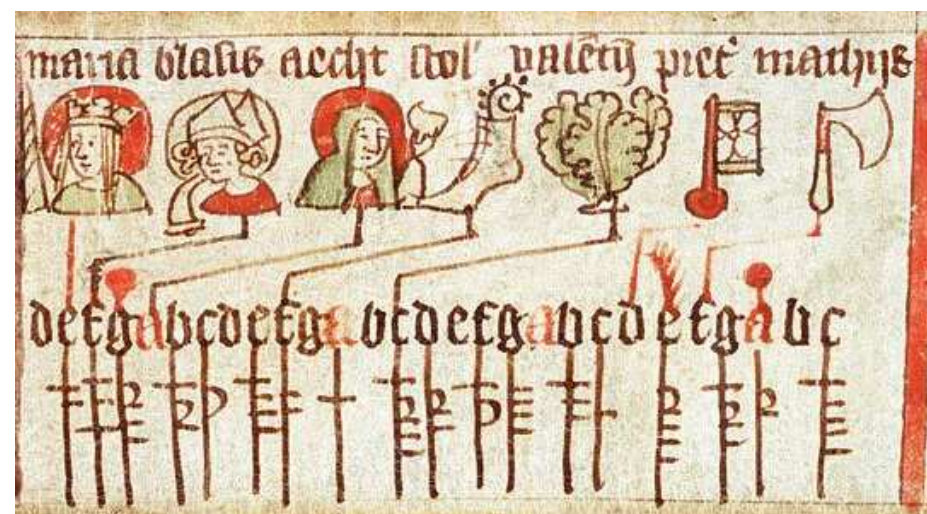 maria blasis aecht scol' valētȷȷ̄ piet' mathijs
defgabcdefgabcdefgabcdefgabc